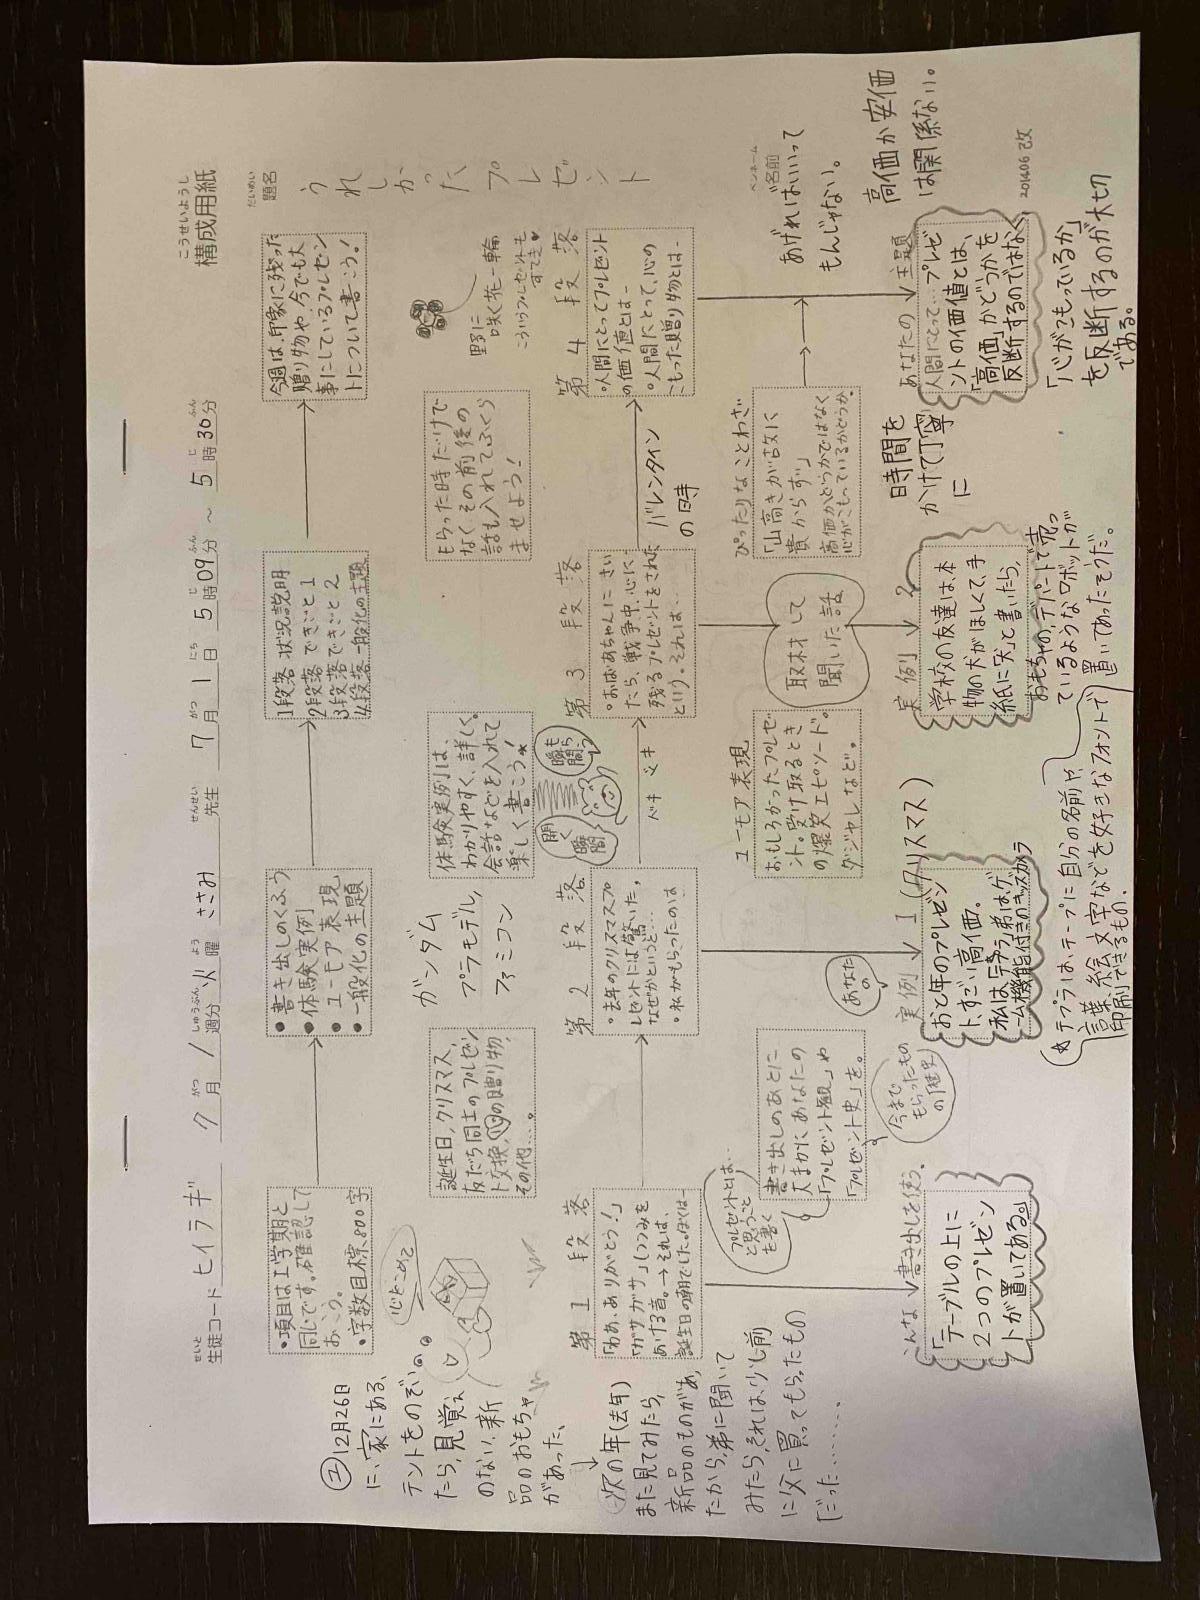 構成用紙
こうせいようし
生徒コード ヒイラギ 7月 1週分 火曜 ささみ先生 7月1日 5時09分～5時30分
題名
だいめい
うれしかったプレゼント
ペンネーム
名前
・項目は1学期と
同じです。確認して
おこう。
・字数目標800字
●書き出しのくふう
●体験実例
●ユーモア表現
●一般化の主題
1段落 状況説明
2段落 できごと1
3段落 できごと2
4段落 一般化の主題
今週は、印象に残った
贈り物や、今でも大
事にしているプレゼン
トについて書こう!
心をこめて
誕生日、クリスマス、
友だち同士のプレゼン
ト交換、心の贈り物、
その他……。
ガンダム
プラモデル,
ファミコン
体験実例は、
わかりやすく、詳しく。
会話などを入れて
楽しく書こう!
もらった時だけで
なく、その前後の
話も入れてふくら
ませよう!
野に
咲く花一輪
こういうプレゼントも
すてき♥
第1段落
「わあ、ありがとう!」
「ガサガサ」(つつみを
あける音。→それは、
誕生日の朝でした。ぼくは―
第2段落
・去年のクリスマスプ
レゼントには驚いた。
なぜかというと…
・私がもらったのは…
開く
瞬間
もらう
瞬間
バキ バキ
第3段落
・おばあちゃんにきい
たら、戦争中、心に
残るプレゼントをされた
という。それは…
バレンタイン
の時
第4段落
・人間にとってプレゼント
の価値とは―
・人間にとって、心の
こもった贈り物とは―
プレゼントとは…
と思うこと
を書く
書き出しのあとに
大まかにあなたの
「プレゼント観」や
「プレゼント史」を。
今まで
もらったもの
の歴史
ユーモア表現
おもしろかったプレゼ
ント。受け取るとき
の爆笑エピソード。
ダジャレなど。
取材して
聞いた話
ぴったりなことわざ
「山高きが故に
貴からず」
高価かどうかではなく
心がこもっているかどうか。
あげればいいって
もんじゃない。
高価か安価
は関係ない。
こんな書き出しを使う。
「テーブルの上に
2つのプレゼン
トが置いてある。」
あなたの
実例1(クリスマス)
おと年のプレゼン
ト、すごい高価。
私はテプラ、弟は、ゲ
ーム機能付きのキッズカメラ
☆テプラは、テープに自分の名前や
言葉、絵文字などを好きなフォントで
印刷できるもの。
実例2
学校の友達は、本
物の犬がほしくて、手
紙に「犬」と書いたら、
おもちゃの、デパートで売っ
ているようなロボットが
置いてあったそうだ。
時間を
かけて丁寧
に
あなたの主題
人間にとって…プレゼ
ントの価値とは、
「高価」かどうかを
反断するのではなく
「心がこもっているか」
を反断するのが大切
である。
201406改
②12月26日
に、家にある、
テントをのぞい
たら、見覚え
のない、新
品のおもちゃ
があった、
↓
次の年(去年)
また見てみたら、
新品のものがあっ
たから、弟に聞いて
みたら、それは、少し前
に父に買ってもらったもの
だった………。